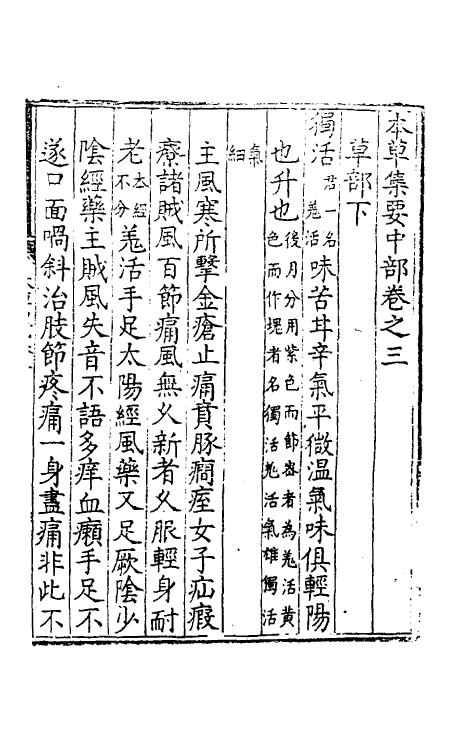 本草集要中部卷之三
草部下
獨活君一名羌活味苦甘辛氣平微温氣味俱輕陽
也升也後月分用紫色而節密者為羌活黃色而作塊者名獨活羌活氣雄獨活
氣細
主風寒所擊金瘡止痛賁豚癇痓女子疝瘕
療諸賊風百節痛風無久新者久服輕身耐
老本經不分羌活手足太陽經風藥又足厥陰少
陰經藥主賊風失音不語多痒血癩手足不
遂口面喎斜治肢節疼痛一身盡痛非此不